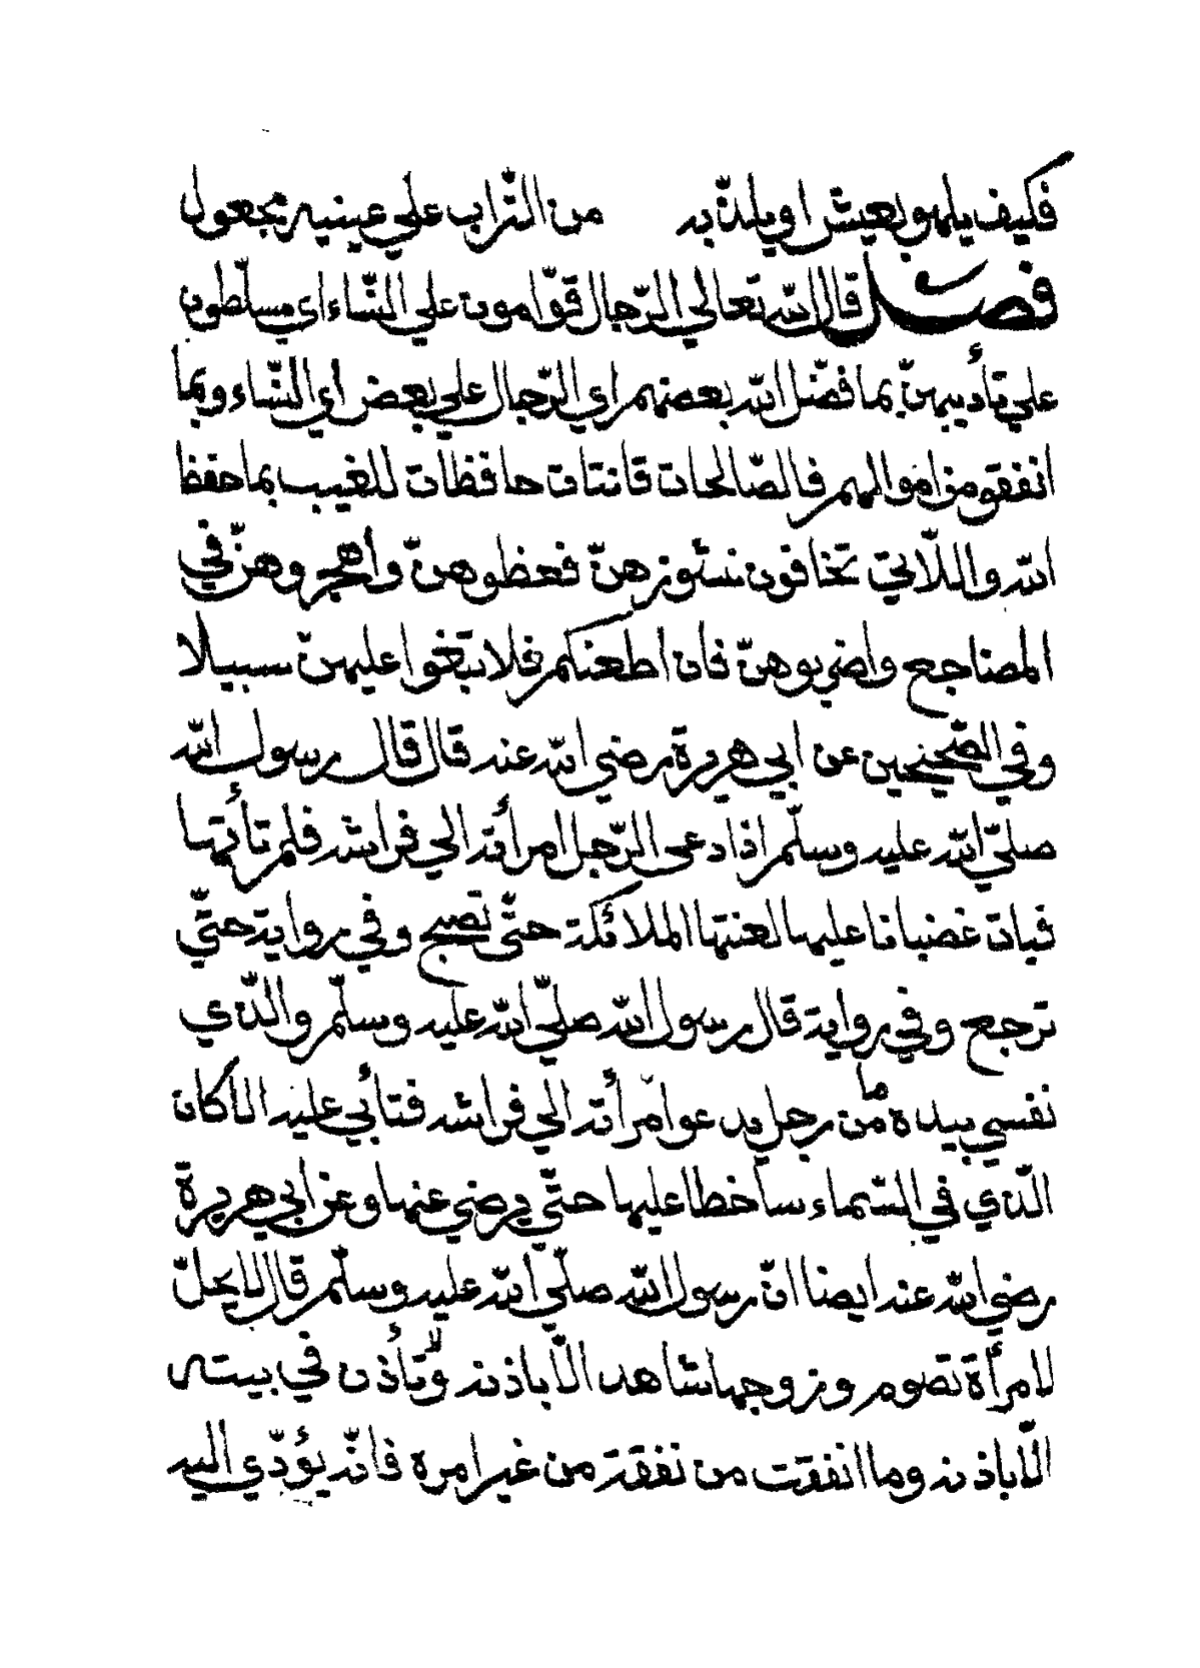 فكيف يلهو بعيش او يلذّ به من التّراب علي عينيه مجعول
فصل قال اللّه تعالي الرّجال قوّامون علي النّساء اي مسلّطون
علي تأديبهنّ بما فضّل اللّه بعضهم اي الرّجال علي بعض اي النّساء وبما
انفقو من اموالهم فالصّالحات قانتات حافظات للغيب بما حفظ
اللّه واللّاتي تخافون نشوزهنّ فعظوهنّ واهجروهنّ في
المضاجع واضربوهنّ فان اطعنكم فلا تبتغوا عليهنّ سبيلا
وفي الصّحيحين عن ابي هريرة رضي اللّه عنه قال قال رسول اللّه
صلّي اللّه عليه وسلّم اذا دعي الرّجل امرأته الي فراشه فلم تأتها
فبات غضبانا عليها لعنتها الملائكة حتّي تصبح وفي رواية حتّي
ترجع وفي رواية قال رسول اللّه صلّي اللّه عليه وسلّم والّذي
نفسي بيده ما من رجل يدعو امرأته الي فراشه فتأبي عليه الا كان
الّذي في السّماء ساخطا عليها حتّي يرضي عنها وعن ابي هريرة
رضي اللّه عنه ايضا انّ رسول اللّه صلّي اللّه عليه وسلّم قال لا يحلّ
لامرأة تصوم وزوجها شاهد الّا باذنه ولا تأذن في بيته
الّا باذنه وما انفقت من نفقة من غير امره فانّه يؤدّي اليه